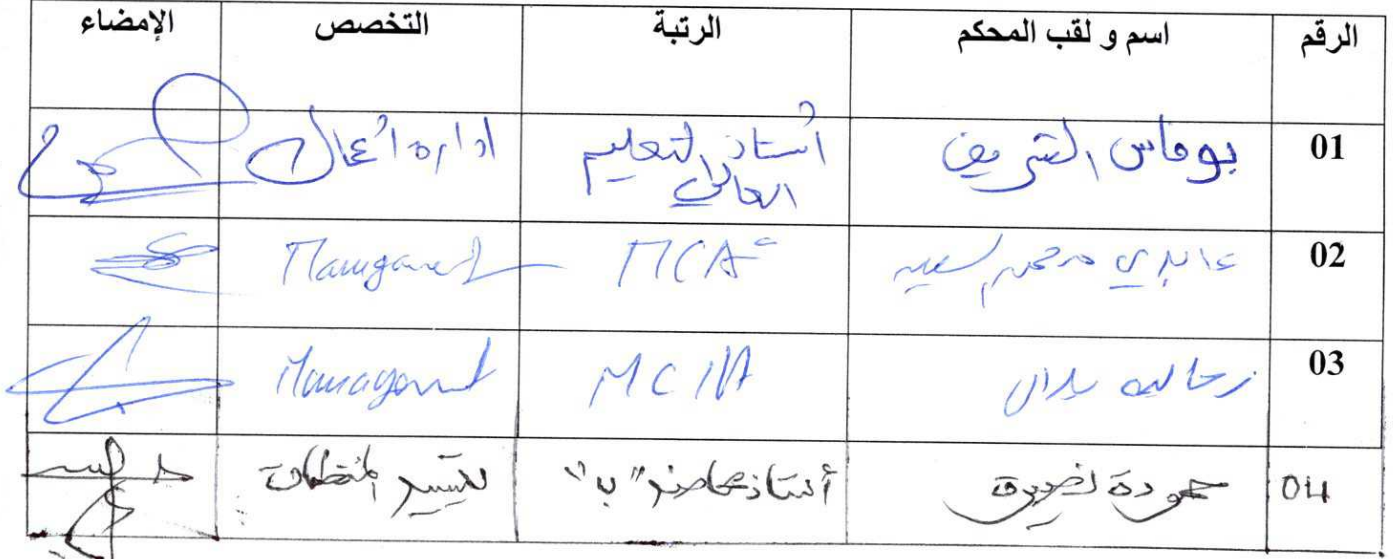 الرقم اسم و لقب المحكم الرتبة التخصص الإمضاء
01 بوفاس الشريف أستاذ التعليم العالي ادارة أعمال
02 عابدي محمد السعيد MCA Management
03 بلال MCA Management
04 حمودة أستاذ محاضر "ب" تسيير المنظمات